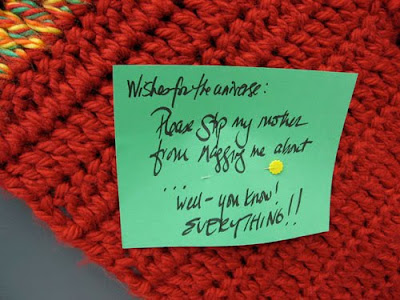 Wishes for the universe:
Please stop my mother
from nagging me about
...
well - you know!
EVERYTHING!!